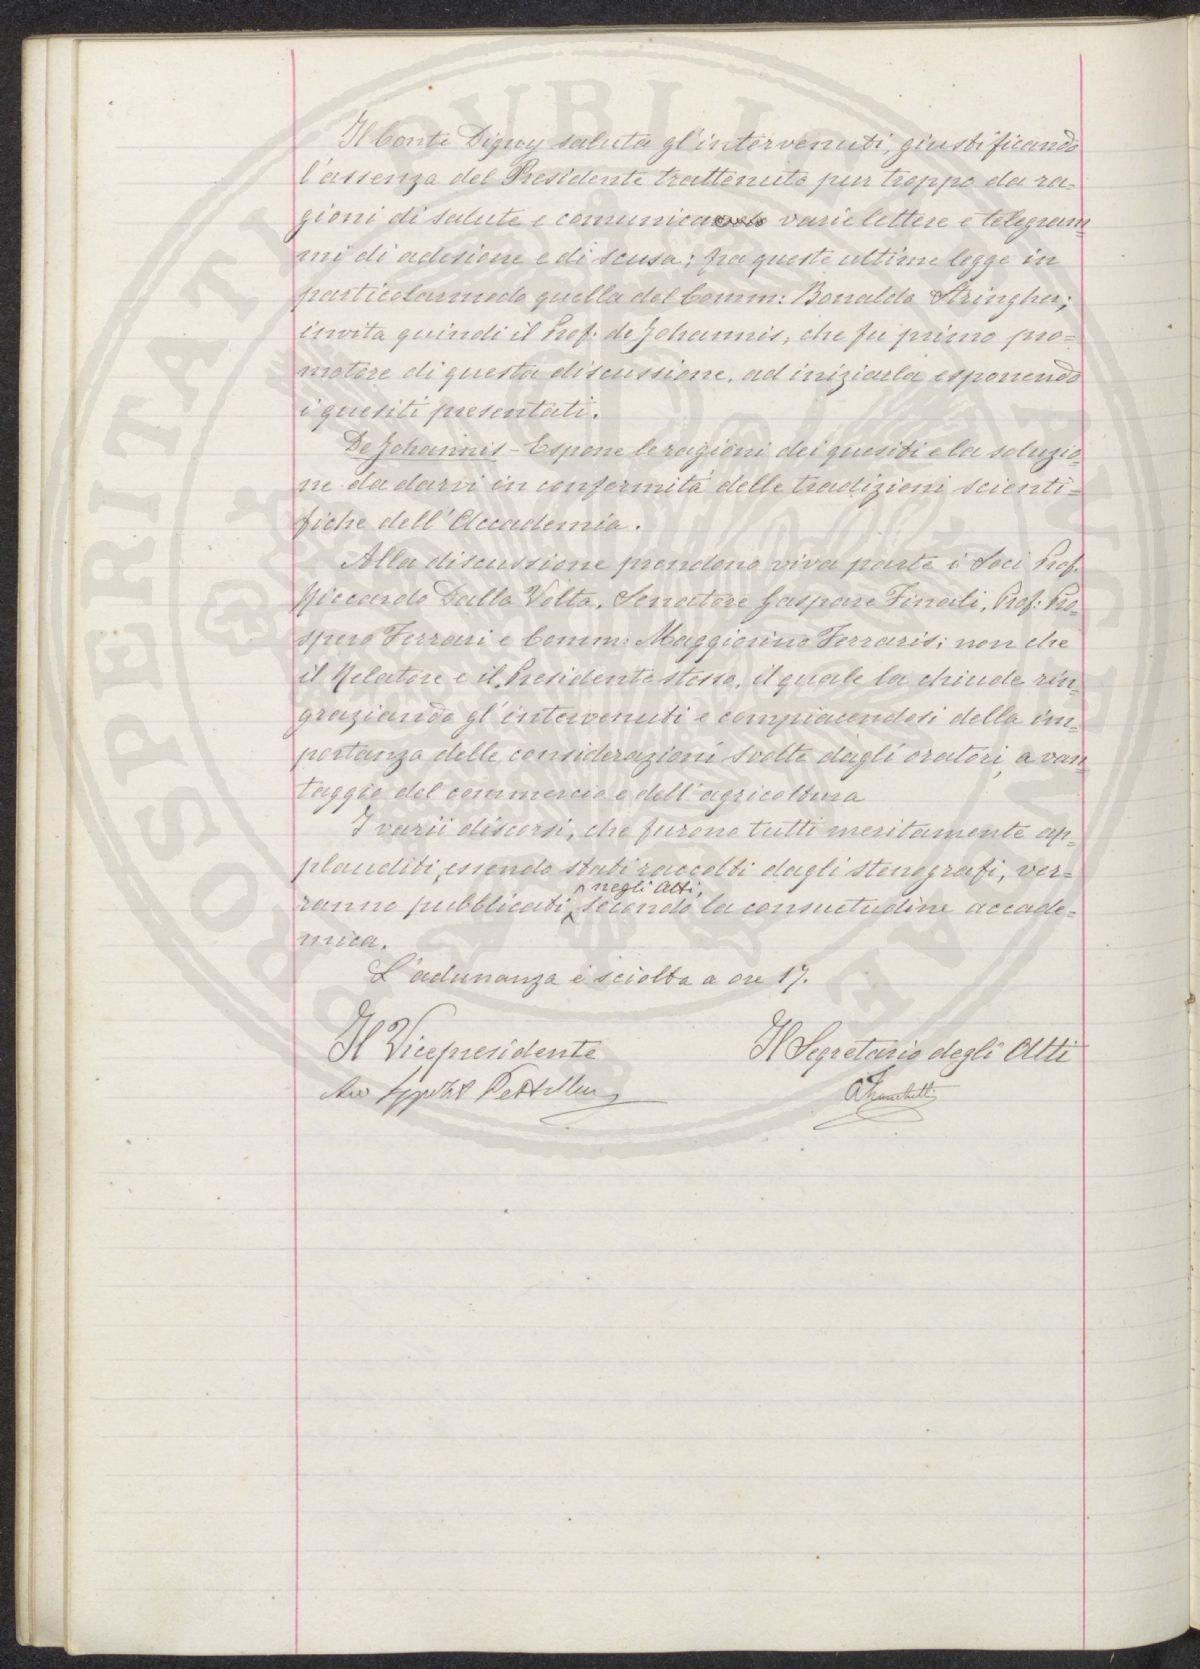 Il Conte Digny saluta gl'intervenuti, giustificando
l'assenza del Presidente trattenuto pur troppo da ra=
gioni di salute e comunica varie lettere e telegram=
mi di adesione e di scusa; fra queste ultime legge in
particolarmodo quella del Comm: Bonaldo Stringher;
invita quindi il Prof: de Johannis, che fu primo pro=
motore di questa discussione, ad iniziarla esponendo
i quesiti presentati.
De Johannis - Espone le ragioni dei quesiti e la soluzio=
ne da darvi in conformità delle tradizioni scienti=
fiche dell'Accademia.
Alla discussione prendono viva parte i Soci Prof.
Riccardo Dalla Volta, Senatore Gaspare Finali, Prof: Pro=
spero Ferrari e Comm: Maggiorino Ferraris; non che
il Relatore e il Presidente stesso, il quale la chiude rin=
graziando gl'intervenuti e compiacendosi della im=
portanza delle considerazioni svolte dagli oratori, a van=
taggio del commercio e dell'agricoltura
I varii discorsi, che furono tutti meritamente ap=
plauditi, essendo stati raccolti dagli stenografi, ver=
negli Atti,
ranno pubblicati secondo la consuetudine accade=
mica.
L'adunanza è sciolta a ore 17.
Il Vicepresidente
Il Segretario degli Atti
PROSPERITATI PUBLICAE AUGENDAE